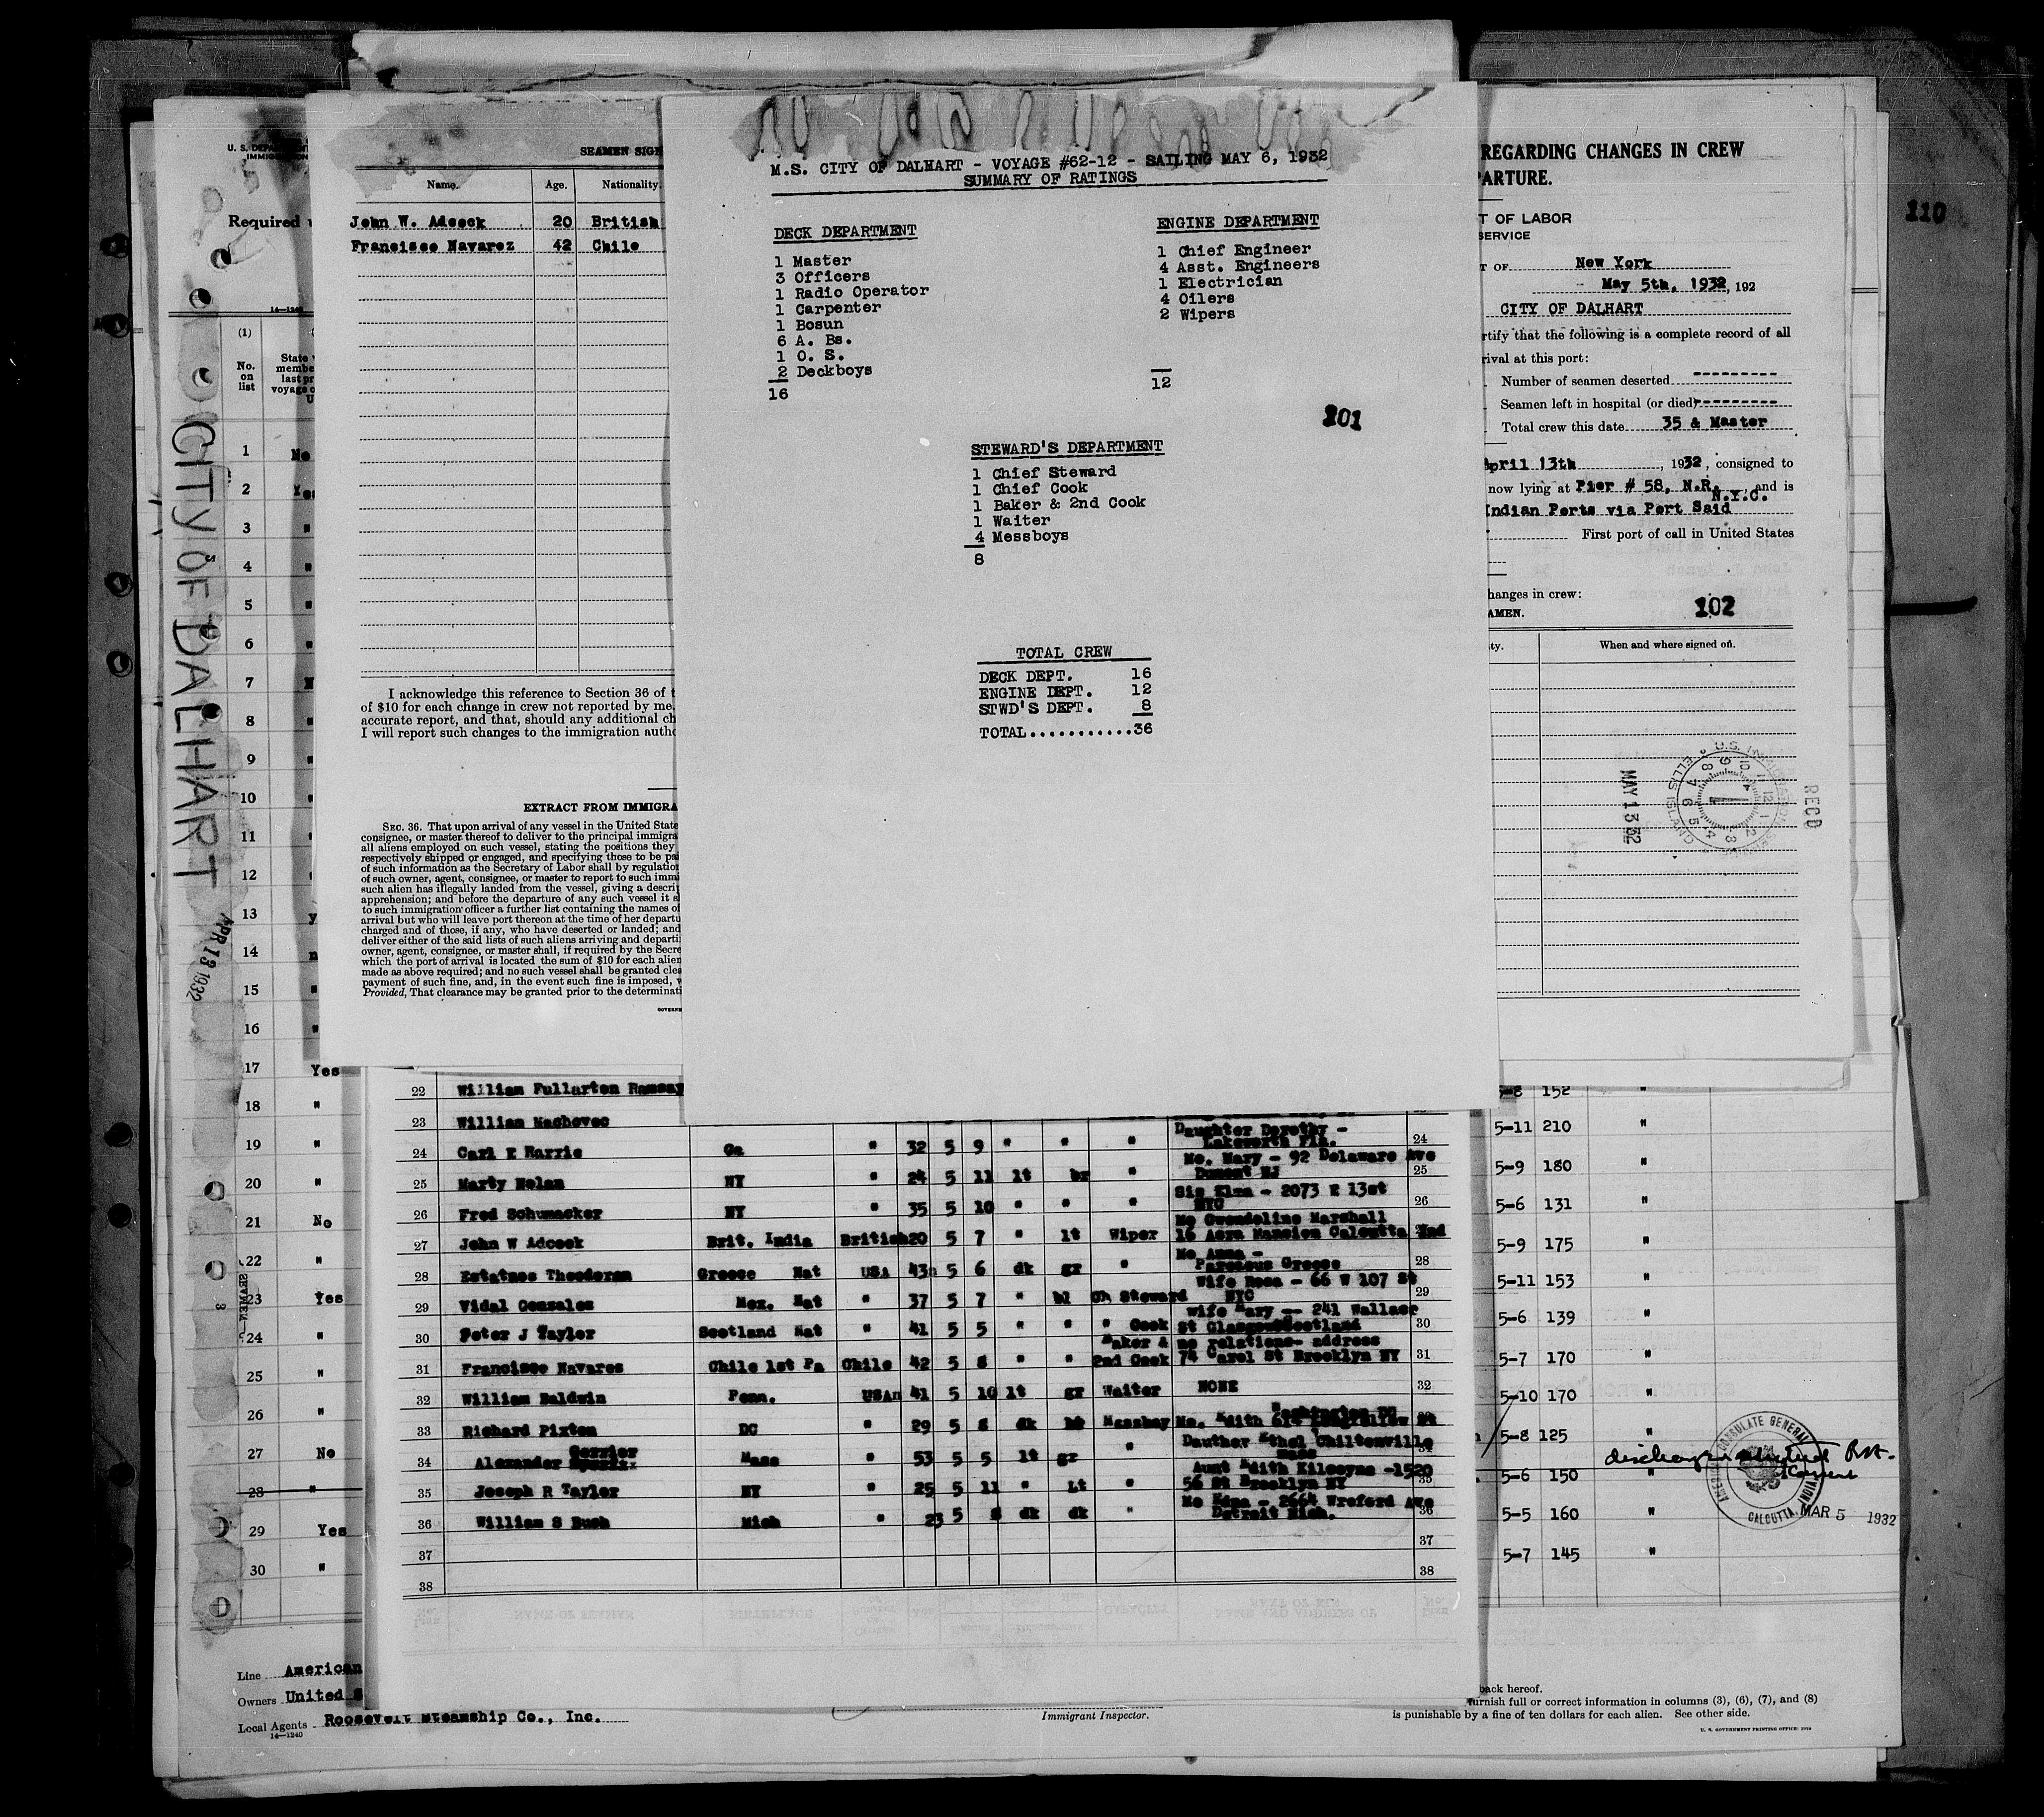 110
M.S. CITY OF DALHART - VOYAGE #62-12 - SAILING MAY 6, 1932
SUMMARY OF RATINGS
DECK DEPARTMENT
1 Master
3 Officers
1 Radio Operator
1 Carpenter
1 Bosun
6 A. Bs.
1 O. S.
2 Deckboys
16
ENGINE DEPARTMENT
1 Chief Engineer
4 Asst. Engineers
1 Electrician
4 Oilers
2 Wipers
12
101
STEWARD'S DEPARTMENT
1 Chief Steward
1 Chief Cook
1 Baker & 2nd Cook
1 Waiter
4 Messboys
8
TOTAL CREW
DECK DEPT. 16
ENGINE DEPT. 12
STWD'S DEPT. 8
TOTAL...........36
SEAMEN SIG
Name. Age. Nationality.
John W. Adcock 20 British
Francisco Navarez 42 Chile
I acknowledge this reference to Section 36 of
of $10 for each change in crew not reported by me.
accurate report, and that, should any additional ch
I will report such changes to the immigration autho
EXTRACT FROM IMMIGRA
SEC. 36. That upon arrival of any vessel in the United State
consignee, or master thereof to deliver to the principal immigra
all aliens employed on such vessel, stating the positions they
respectively shipped or engaged, and specifying those to be pai
of such information as the Secretary of Labor shall by regulation
of such owner, agent, consignee, or master to report to such immi
such alien has illegally landed from the vessel, giving a descri
apprehension; and before the departure of any such vessel it s
to such immigration officer a further list containing the names of
arrival but who will leave port thereon at the time of her departu
charged and of those, if any, who have deserted or landed; and
deliver either of the said lists of such aliens arriving and departi
owner, agent, consignee, or master shall, if required by the Secre
which the port of arrival is located the sum of $10 for each alien
made as above required; and no such vessel shall be granted clea
payment of such fine, and, in the event such fine is imposed, w
Provided, That clearance may be granted prior to the determinati
REGARDING CHANGES IN CREW
PARTURE.
T OF LABOR
SERVICE
T OF New York
May 5th, 1932, 192
CITY OF DALHART
rtify that the following is a complete record of all
rival at this port:
Number of seamen deserted
Seamen left in hospital (or died)
Total crew this date 35 & Master
April 13th, 1932, consigned to
now lying at Pier # 58, N.R. N.Y.C. and is
Indian Ports via Port Said
First port of call in United States
hanges in crew:
AMEN.
102
ity. When and where signed on.
U.S. IMMIGRATION SERVICE
ELLIS ISLAND
MAY 13 32
RECD
U. S. DEPA
IMMIGRATION
Required
14-1240
CITY OF DALHART
APR 13 1932
(1)
No. on list
State
membe
last pr
voyage o
U
1 No
2 Yes
3 "
4 "
5 "
6 "
7 N
8 "
9 "
10 "
11 "
12 "
13 y
14 n
15 "
16 "
17 Yes
18 "
19 "
20 "
21 No
22 "
23 Yes
24 "
25 "
26 "
27 No
28 "
29 Yes
30 "
22 William Fullarton Ramsay
23 William Machovec
24 Carl E Harris Ga " 32 5 9 " " " Daughter Dorothy - Lakeworth Fla. 24
25 Marty Nolan NY " 24 5 11 lt br " Mo. Mary - 92 Delaware Ave Dumont NJ 25
26 Fred Schumacker NY " 35 5 10 " " " Sis Elma - 2073 E 13st NYC 26
27 John W Adcock Brit. India British 20 5 7 " lt Wiper Mo Gwendoline Marshall 16 Acra Mansion Calcutta Ind
28 Theodoran Greece Nat USA 43 5 6 dk gr " Mo Anna - Greece 28
29 Vidal Gonzales Mex. Nat " 37 5 7 " bl Ch Steward Wife Rosa - 66 W 107 St NYC 29
30 Peter J Taylor Scotland Nat " 41 5 5 " " " Cook wife Mary -- 241 Wallace St Glasgow Scotland 30
31 Francisco Navares Chile 1st Pa Chile 42 5 8 " " Baker & 2nd Cook no relations- address 74 Carol St Brooklyn NY 31
32 William Baldwin Penn. USA 41 5 10 lt gr Waiter NONE 32
33 Richard Pixton DC " 29 5 8 dk Messboy Mo. Edith Longfellow St Washington DC
34 Alexander Cerrier Mass " 53 5 5 lt gr " Dauther Ethel Chiltonville Mass
35 Joseph R Taylor NY " 25 5 11 " Lt " Aunt Edith Kilcoyne -1520 56 St Brooklyn NY 35
36 William S Bush Mich " 23 5 8 dk dk " Mo Edna - 2664 Wreford Ave Detroit Mich. 36
37 37
38 38
5-8 152 "
5-11 210 "
5-9 180 "
5-6 131 "
5-9 175 "
5-11 153 "
5-6 139 "
5-7 170 "
5-10 170 "
5-8 125 "
5-6 150 "
5-5 160 "
5-7 145 "
AMERICAN CONSULATE GENERAL
CALCUTTA
MAR 5 1932
Line American
Owners United S
Local Agents Roosevelt Steamship Co., Inc.
14-1240
Immigrant Inspector.
back hereof.
furnish full or correct information in columns (3), (6), (7), and (8)
is punishable by a fine of ten dollars for each alien. See other side.
U. S. GOVERNMENT PRINTING OFFICE